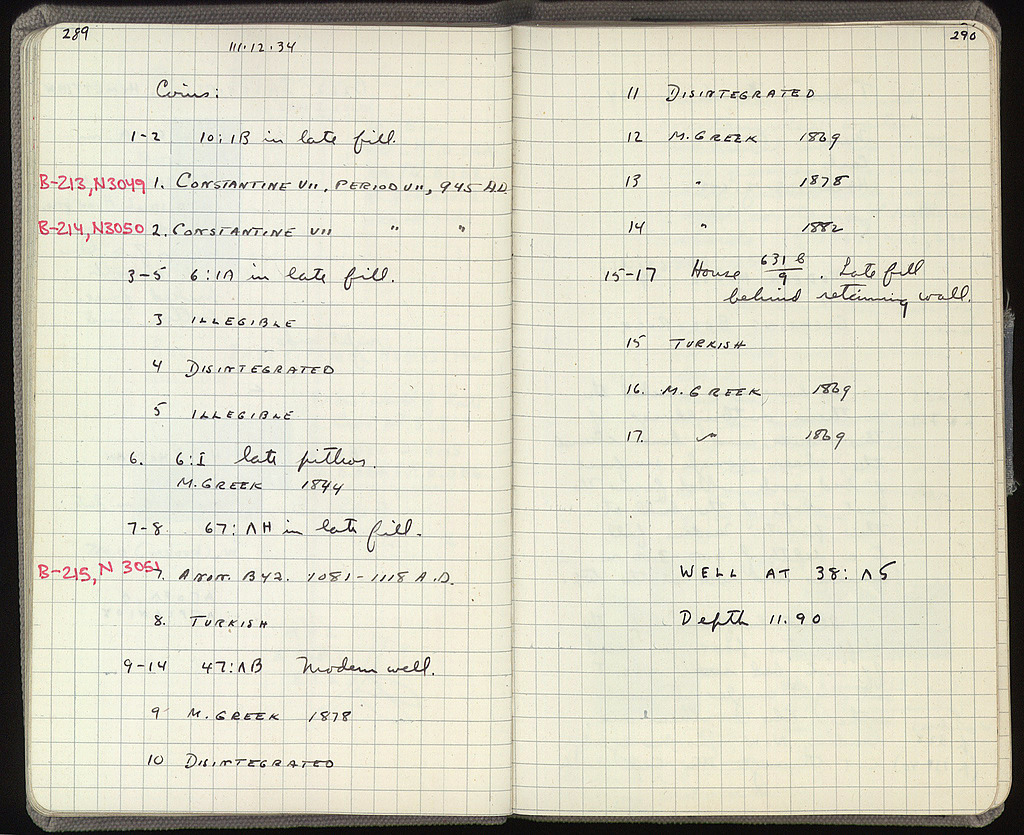 289
111.12.34
Coins:
1-2 10:1B in late fill.
B-213, N3049 1. CONSTANTINE VII. PERIOD VII, 945 A.D.
B-214, N3050 2. CONSTANTINE VII " "
3-5 6:1A in late fill.
3 ILLEGIBLE
4 DISINTEGRATED
5 ILLEGIBLE
6. 6:I late pithos.
M.GREEK 1844
7-8 67:ΛH in late fill.
B-215, N 3051 7. ANON. BYZ. 1081-1118 A.D.
8. TURKISH
9-14 47:ΛB Modern well.
9 M. GREEK 1878
10 DISINTEGRATED
290
11 DISINTEGRATED
12 M. GREEK 1869
13 " 1878
14 " 1882
15-17 House 631 B/9. Late fill
behind retaining wall.
15 TURKISH
16. M. GREEK 1869
17. " 1869
WELL AT 38:Λ5
Depth 11.90